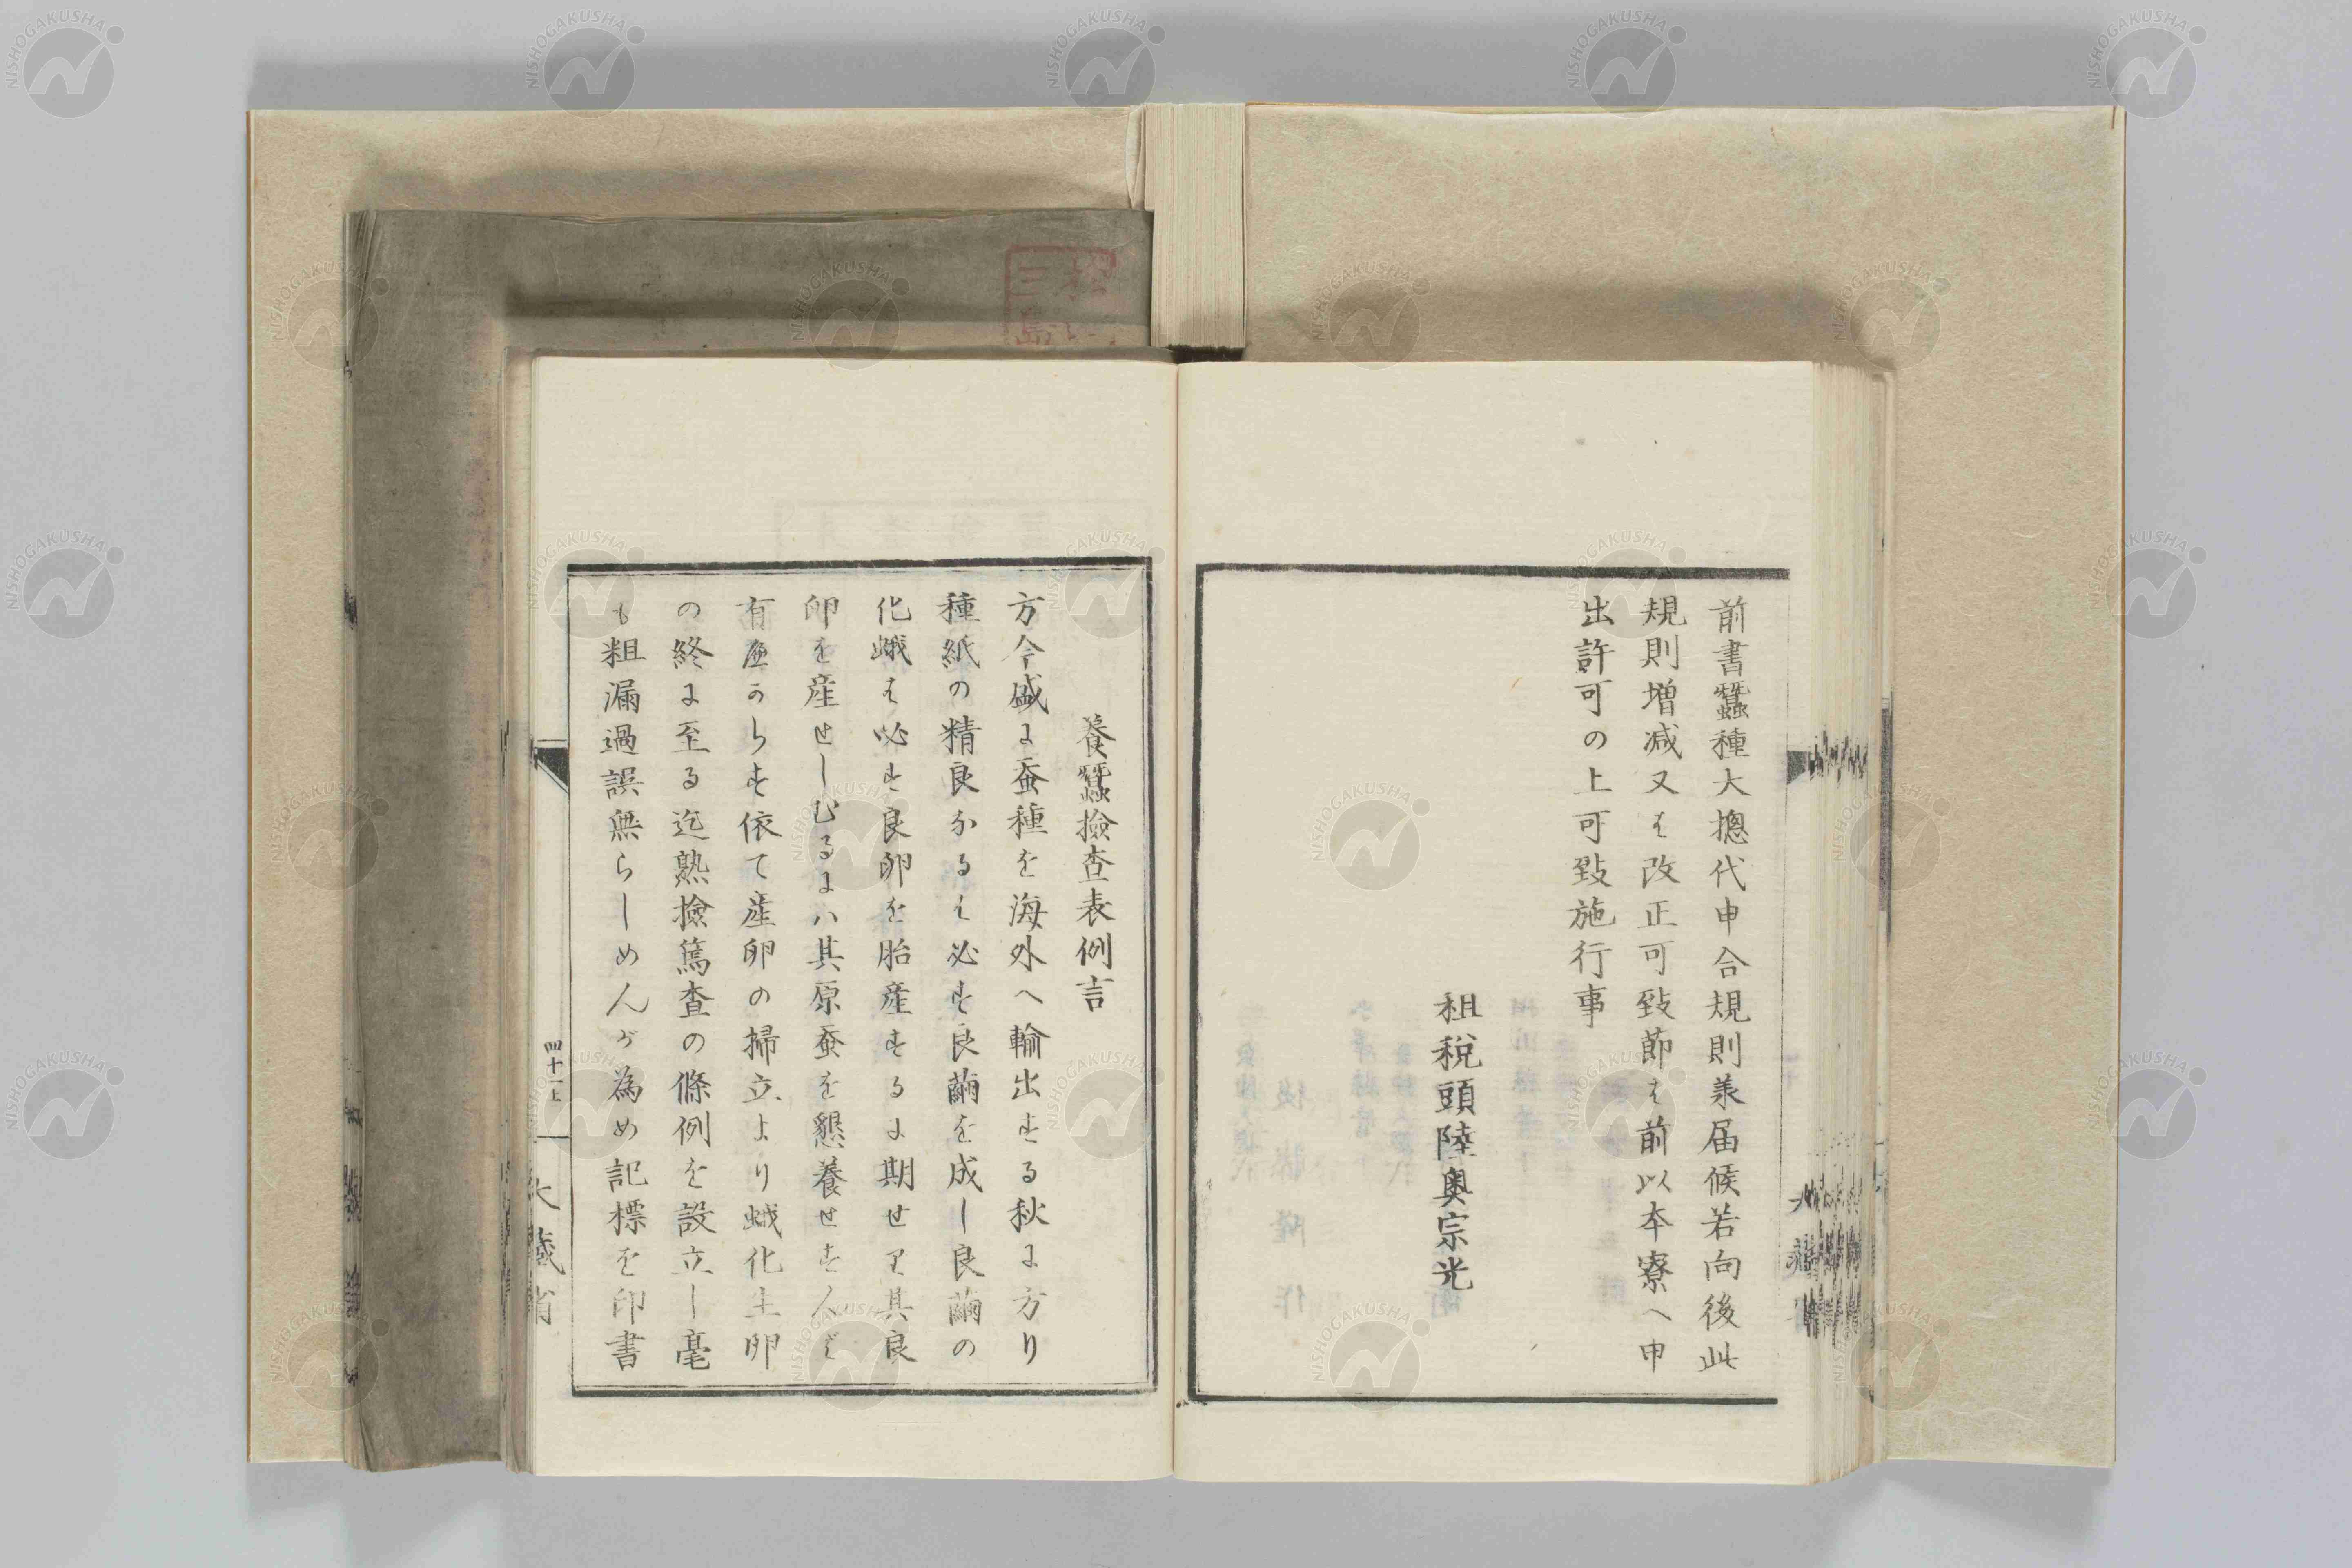 前書蠶種大摠代申合規則兼届候若向後此
規則増减又は改正可致節は前以本寮へ申
出許可の上可致施行事
租税頭陸奥宗光
養蠶撿査表例言
方今盛に蚕種を海外へ輸出する秋に方り
種紙の精良なるは必す良繭を成し良繭の
化蛾は必す良卵を胎産するに期せり其良
卵を産せしむるにハ其原蚕を懇養せすんば
有べからす依て産卵の掃立より蛾化生卵
の終に至る迄熟撿篤査の條例を設立し毫
も粗漏過誤無らしめんが為め記標を印書
四十一上
大藏省
三島
NISHOGAKUSHA